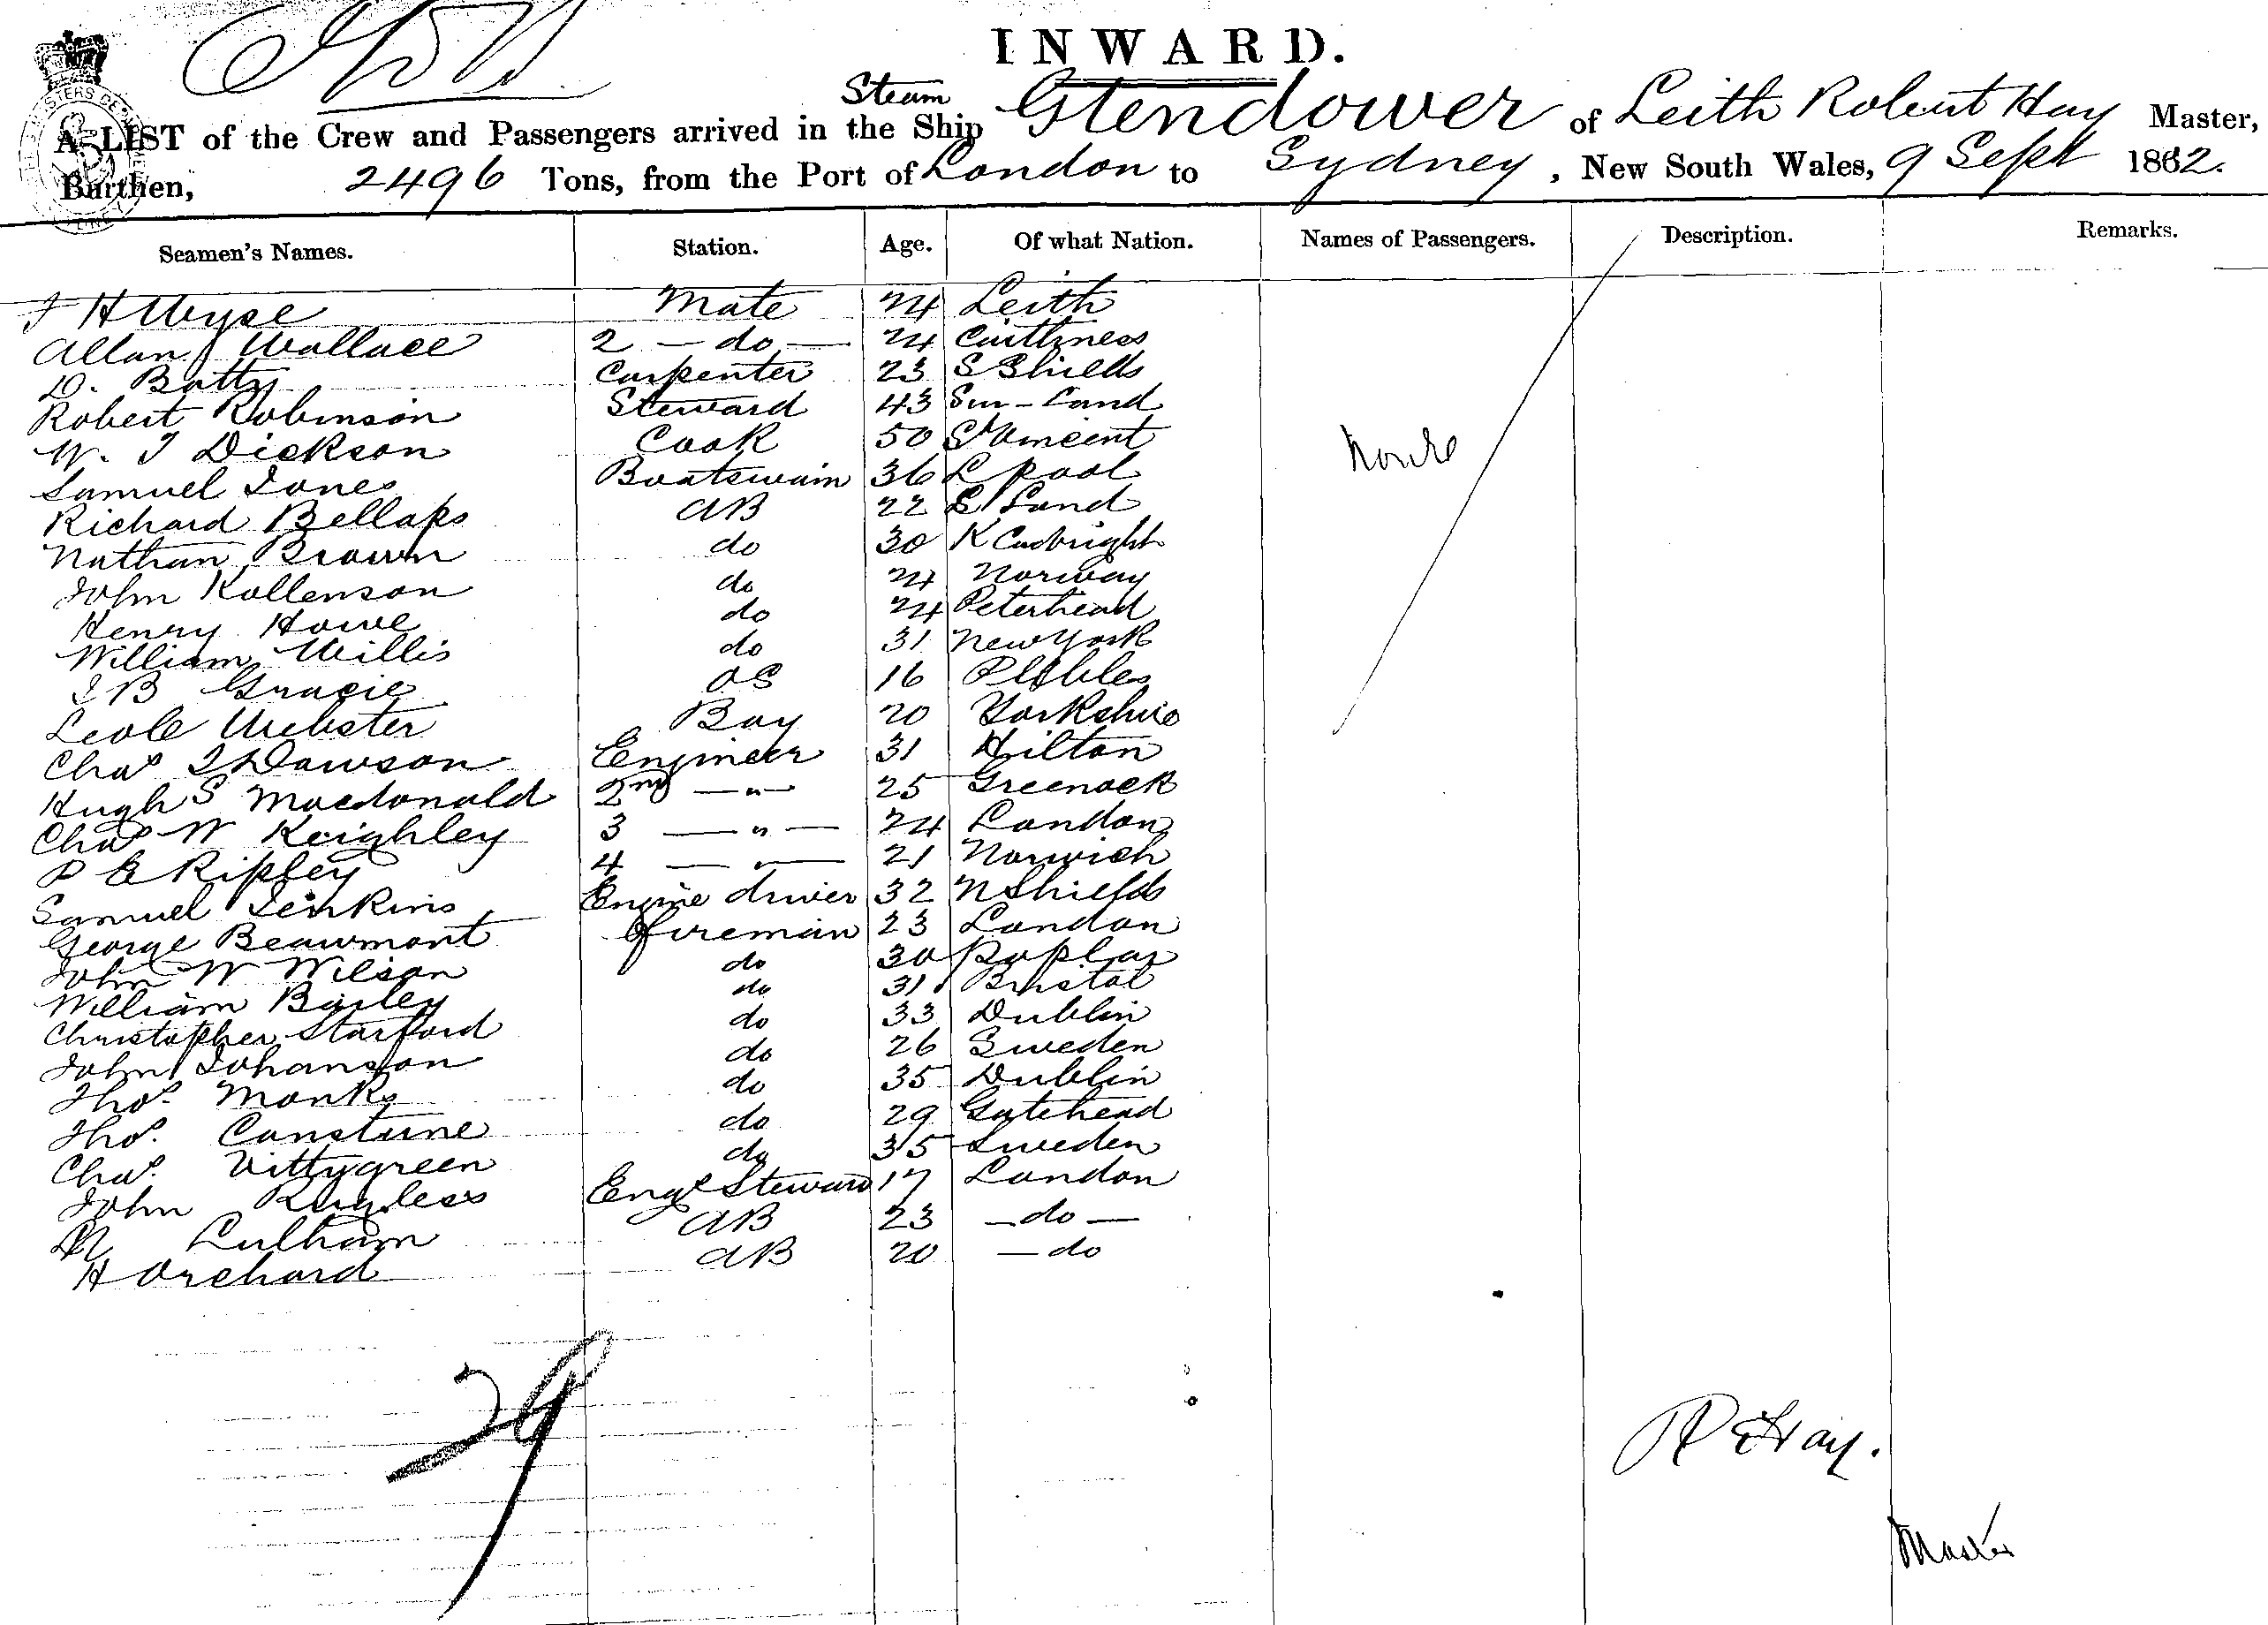 INWARD.
Steam
A LIST of the Crew and Passengers arrived in the Ship Glendower of Leith Robert Hay Master,
Burthen, 2496 Tons, from the Port of London to Sydney, New South Wales, 9 Sept 1882.
Seamen's Names. Station. Age. Of what Nation. Names of Passengers. Description. Remarks.
J H Wyse Mate 24 Leith
Allan J Wallace 2 - do - 24 Caithness
D. Batty Carpenter 23 S Shields
Robert Robinson Steward 43 Sun-Land
W. J Dickson Cook 50 St Vincent
None
Samuel Jones Boatswain 36 L pool
Richard Bellaps AB 22 Land
Nathan Brown do 30 K Cudbright
John Kollenson do 24 Norway
Henry Howe do 24 Peterhead
William Willis do 31 New York
J B Gracie OS 16 Peebles
Webster Boy 20 Yorkshire
Chas J Dawson Engineer 31 Hilton
Hugh S Macdonald 2nd - " - 25 Greenock
Chas W Keighley 3 - " - 24 London
P E Ripley 4 - " - 21 Norwich
Samuel Jenkins Engine driver 32 N Shields
George Beaumont fireman 23 London
John W Wilson do 30 Poplar
William Bailey do 31 Bristol
Christopher Starford do 33 Dublin
John Johanson do 26 Sweden
Thos. Monks do 35 Dublin
Thos. Constine do 29 Gatehead
Chas. Vittygreen do 35 Sweden
John Engr Steward 17 London
Lulham AB 23 - do -
H Orchard AB 20 - do
29
R Hay.
Master